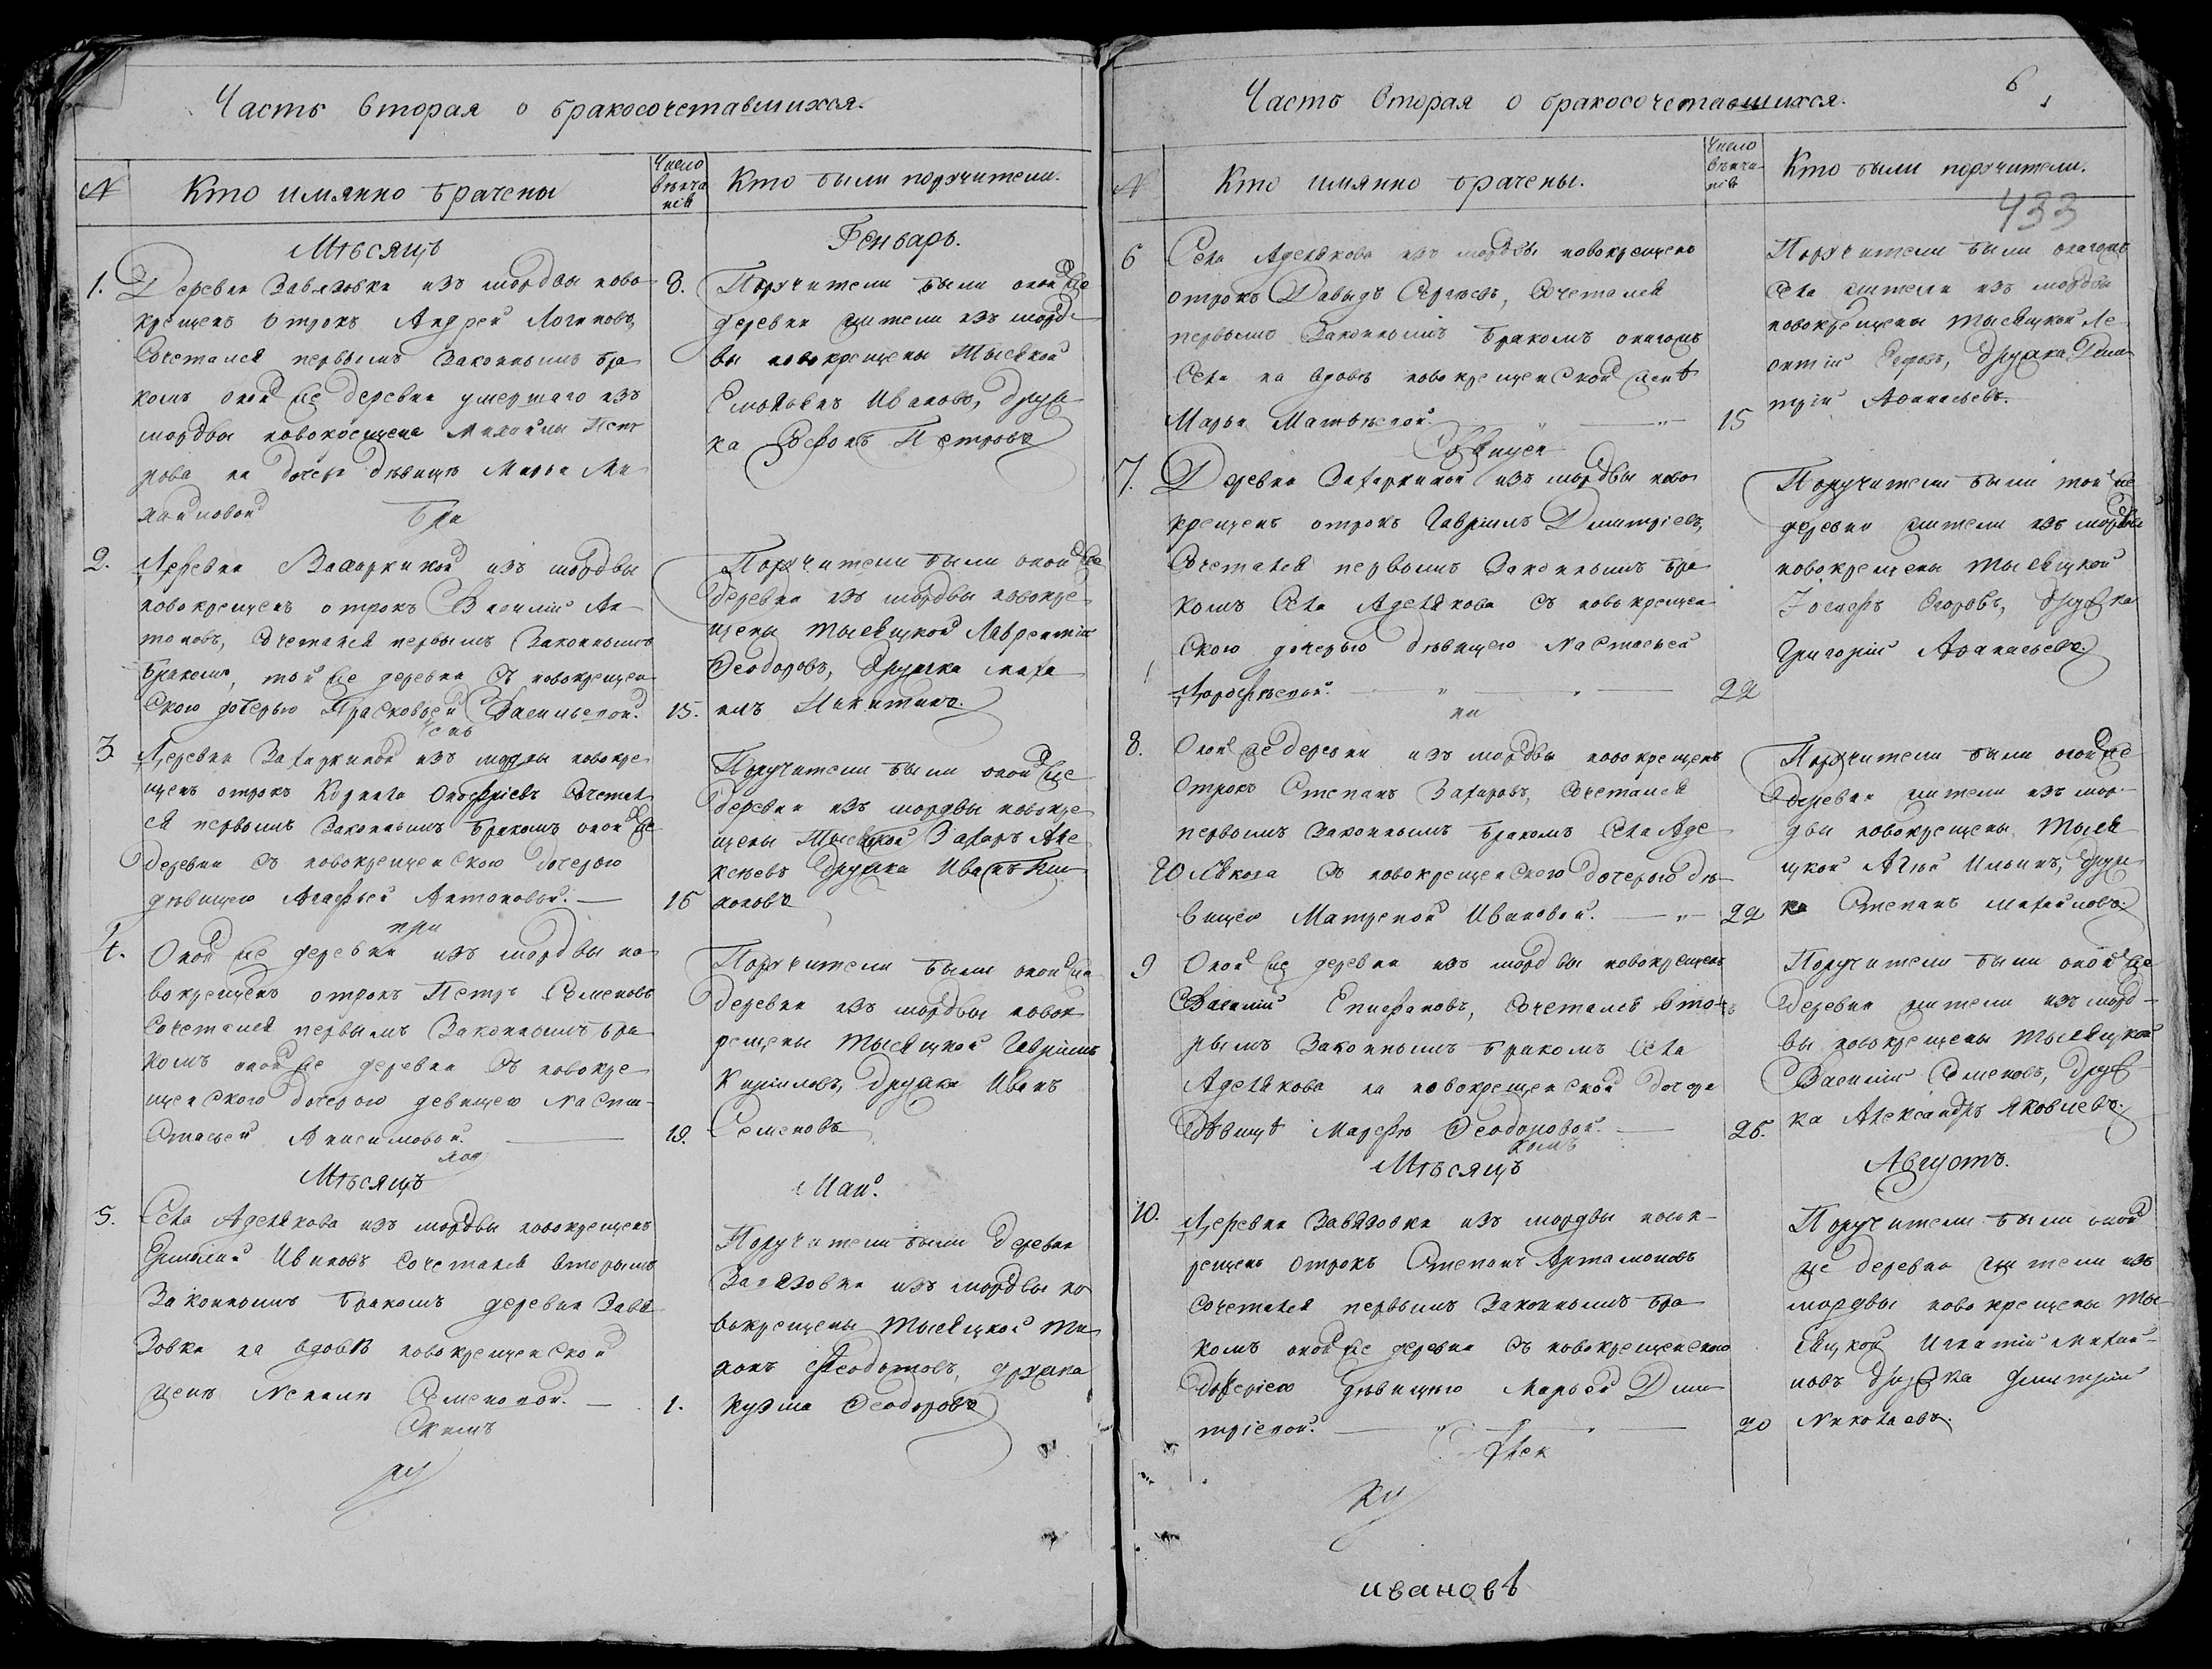 Часть вторая о бракосочетавшихся.
№
Кто имянно брачены
Число венча нiя
Кто были поручители.
Мѣсяцъ
Генварь.
1. Деревни Завязовки изъ мордвы ново
крещенъ отрокъ Андрей Логиновъ,
Сочетался первымъ законнымъ бра
комъ оной же деревни умершаго изъ
мордвы новокрещена Михайлы Пет
рова на дочерѣ дѣвицѣ Марьѣ Ми
хайловой
8.
Поручители были оной же
деревни жители изъ морд
вы новокрещены Тысяцкой
Иванов, друж
ка Петровъ
Бра
2. Деревни Захаркиной изъ мордвы
новокрещенъ отрокъ Василiй Ан
тоновъ, сочетался первымъ законнымъ
бракомъ, той же деревни съ новокрещен
скою дочерью Прасковьей Васильевой.
15.
Поручители были оной же
деревни изъ мордвы новокре
щены тысяцкой Лаврентiй
Феодоровъ, дружка
илъ Никитинъ.
3. Деревни Захаркиной изъ мордвы новокре
щенъ отрокъ Онофрiевъ сочетал
ся первымъ законнымъ бракомъ оной же
деревни съ новокрещенскою дочерью
дѣвицею Агафьей Антоновой.
16
Поручители были оной же
деревни изъ мордвы новокре
щены Тысяцкой Захаръ Але
ксѣевъ дружка Иванъ
при
4. Оной же деревни изъ мордвы но
вокрещенъ отрокъ Петръ Семеновъ
сочетался первымъ законнымъ бра
комъ оной же деревни съ новокре
щенскою дочерью девицею Наста
стасьей Анисимовой.
19.
Поручители были оной же
деревни изъ мордвы новок
рещены тысяцкой Гаврiилъ
Кириловъ, дружка Иванъ
Семеновъ
Мѣсяцъ
Май.
5. Села Аделякова изъ мордвы новокрещенъ
Ивановъ сочетался вторымъ
законнымъ бракомъ деревни Завя
зовки на вдовѣ новокрещенской
женѣ Семеновой.
1.
Поручители были деревни
Завязовки изъ мордвы но
вокрещены тысяцкой Ти
хонъ Феодотовъ, дружка
Кузма Феодоровъ
Скимъ
Часть вторая о бракосочетавшихся.
6
№
Кто имянно брачены.
Число венча нiя
Кто были поручители.
433
6 Села Аделякова изъ мордвы новокрещенъ
отрокъ Давыдъ Сергѣевъ, сочетался
первымъ законнымъ бракомъ онагожъ
села на вдовѣ новокрещенской женѣ
Марьи Матвѣевой.
15
Поручители были онагожъ
села жители изъ мордвы
новокрещены тысяцкой Ле
онтiй Егоровъ, дружка Дми
трiй Афанасьевъ.
Священ
7. Деревни Захаркиной изъ мордвы ново
крещенъ отрокъ Гаврiилъ Дмитрiевъ,
сочетался первымъ законнымъ бра
комъ села Аделякова съ новокрещен
скою дочерью дѣвицею Настасьей
Дорофѣевой.
22
Поручители были той же
деревни жители изъ мордвы
новокрещены тысяцкой
Iосифъ Егоровъ, дружка
Григорiй Афанасьевъ.
ни
8. Оной же деревни изъ мордвы новокрещенъ
отрокъ Степанъ Захаровъ, сочетался
первымъ законнымъ бракомъ села Аде
лякова съ новокрещенскою дочерью дѣ
вицею Матреной Ивановой.
22
Поручители были оной же
деревни жители изъ мор
двы новокрещены, тыся
цкой Ильинъ, друж
ка Степанъ Михайловъ.
9 Оной же деревни изъ мордвы новокрещенъ
Василiй Епифановъ, сочетался вто
рымъ законнымъ бракомъ села
Аделякова на новокрещенской дочери
дѣвицѣ Марфѣ Феодоровой.
26.
Поручители были оной же
деревни жители изъ морд
вы новокрещены тысяцкой
Василiй Семеновъ, друж
ка Александръ Яковлевъ.
комъ
Мѣсяцъ
Августъ.
10. Деревни Завязовки изъ мордвы новок
рещенъ отрокъ Степанъ Артамоновъ
сочетался первымъ законнымъ бра
комъ оной же деревни съ новокрещенскою
дочерiею дѣвицею Марьей Дми
трiевой.
20
Поручители были оной
же деревни жители изъ
мордвы новокрещены ты
сяцкой Игнатiй Михай
ловъ дружка Дмитрiй
Николаевъ.
Алек
ивановъ